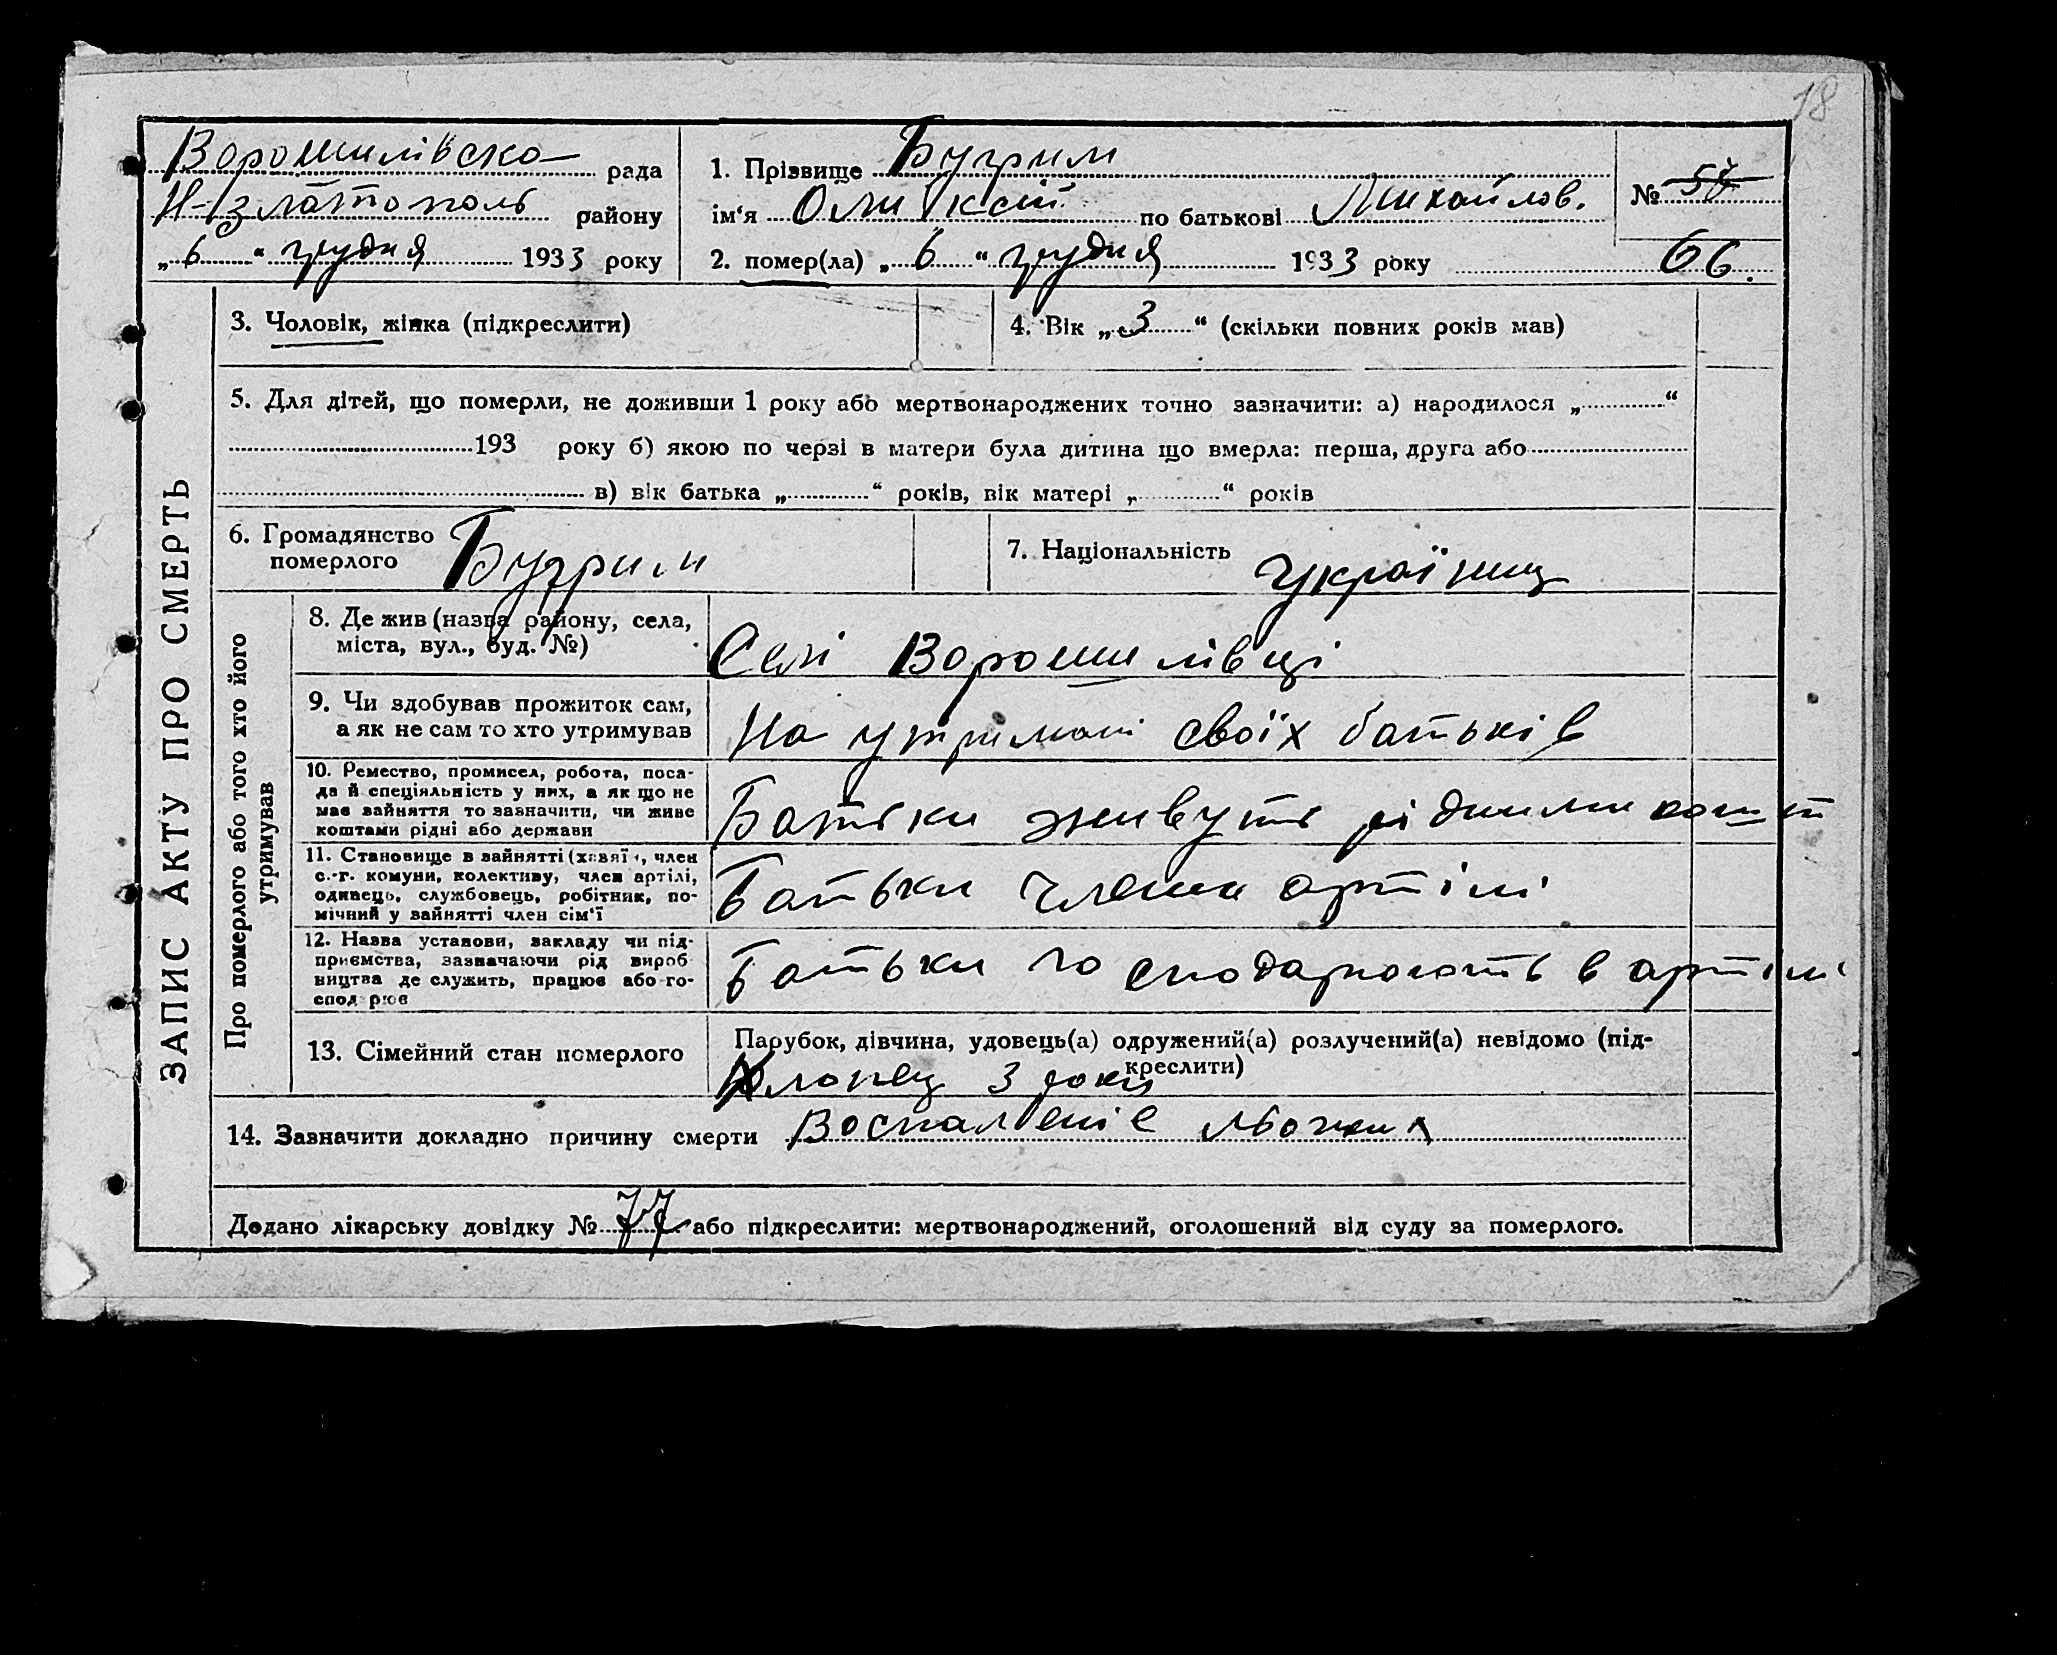 18
Ворошилівска рада
Н-Златополь району
„6“ грудня 1933 року
1. Прізвище Бугрим
ім‘я Оликсій по батькові Михайлов.
2. помер(ла) „6“ грудня 1933 року
№ 57
66.
ЗАПИС АКТУ ПРО СМЕРТЬ
3. Чоловік, жінка (підкреслити)
4. Вік „3“ (скільки повних років мав)
5. Для дітей, що померли, не доживши 1 року або мертвонароджених точно зазначити: а) народилося „ “
193 року б) якою по черзі в матери була дитина що вмерла: перша, друга або
в) вік батька „ “ років, вік матері „ “ років
6. Громадянство
померлого Бугрим
7. Національність україниц
Про померлого або того хто його
утримував
8. Де жив (назва району, села,
міста, вул., буд. №)
Селі Ворошилівці
9. Чи здобував прожиток сам,
а як не сам то хто утримував
На утримані своїх батьків
10. Ремество, промисел, робота, поса-
да й спеціяльність у них, а як що не
має зайняття то зазначити, чи живе
коштами рідні або держави
Батьки живуть рідними кошт
11. Становище в зайнятті (хазяїн, член
с.-г. комуни, колективу, член артілі,
одинець, службовець, робітник, по-
мічний у зайнятті член сім‘ї
Батьки члени артілі
12. Назва установи, закладу чи під-
приємства, зазначаючи рід вироб
ництва де служить, працює або го-
сподарює
Батьки госнодарюють в артілі
13. Сімейний стан померлого
Парубок, дівчина, удовець(а) одружений(а) розлучений(а) невідомо (під-
креслити)
Хлопец 3 роки
14. Зазначити докладно причину смерти Воспаленіє
Додано лікарську довідку № 77 або підкреслити: мертвонароджений, оголошений від суду за померлого.